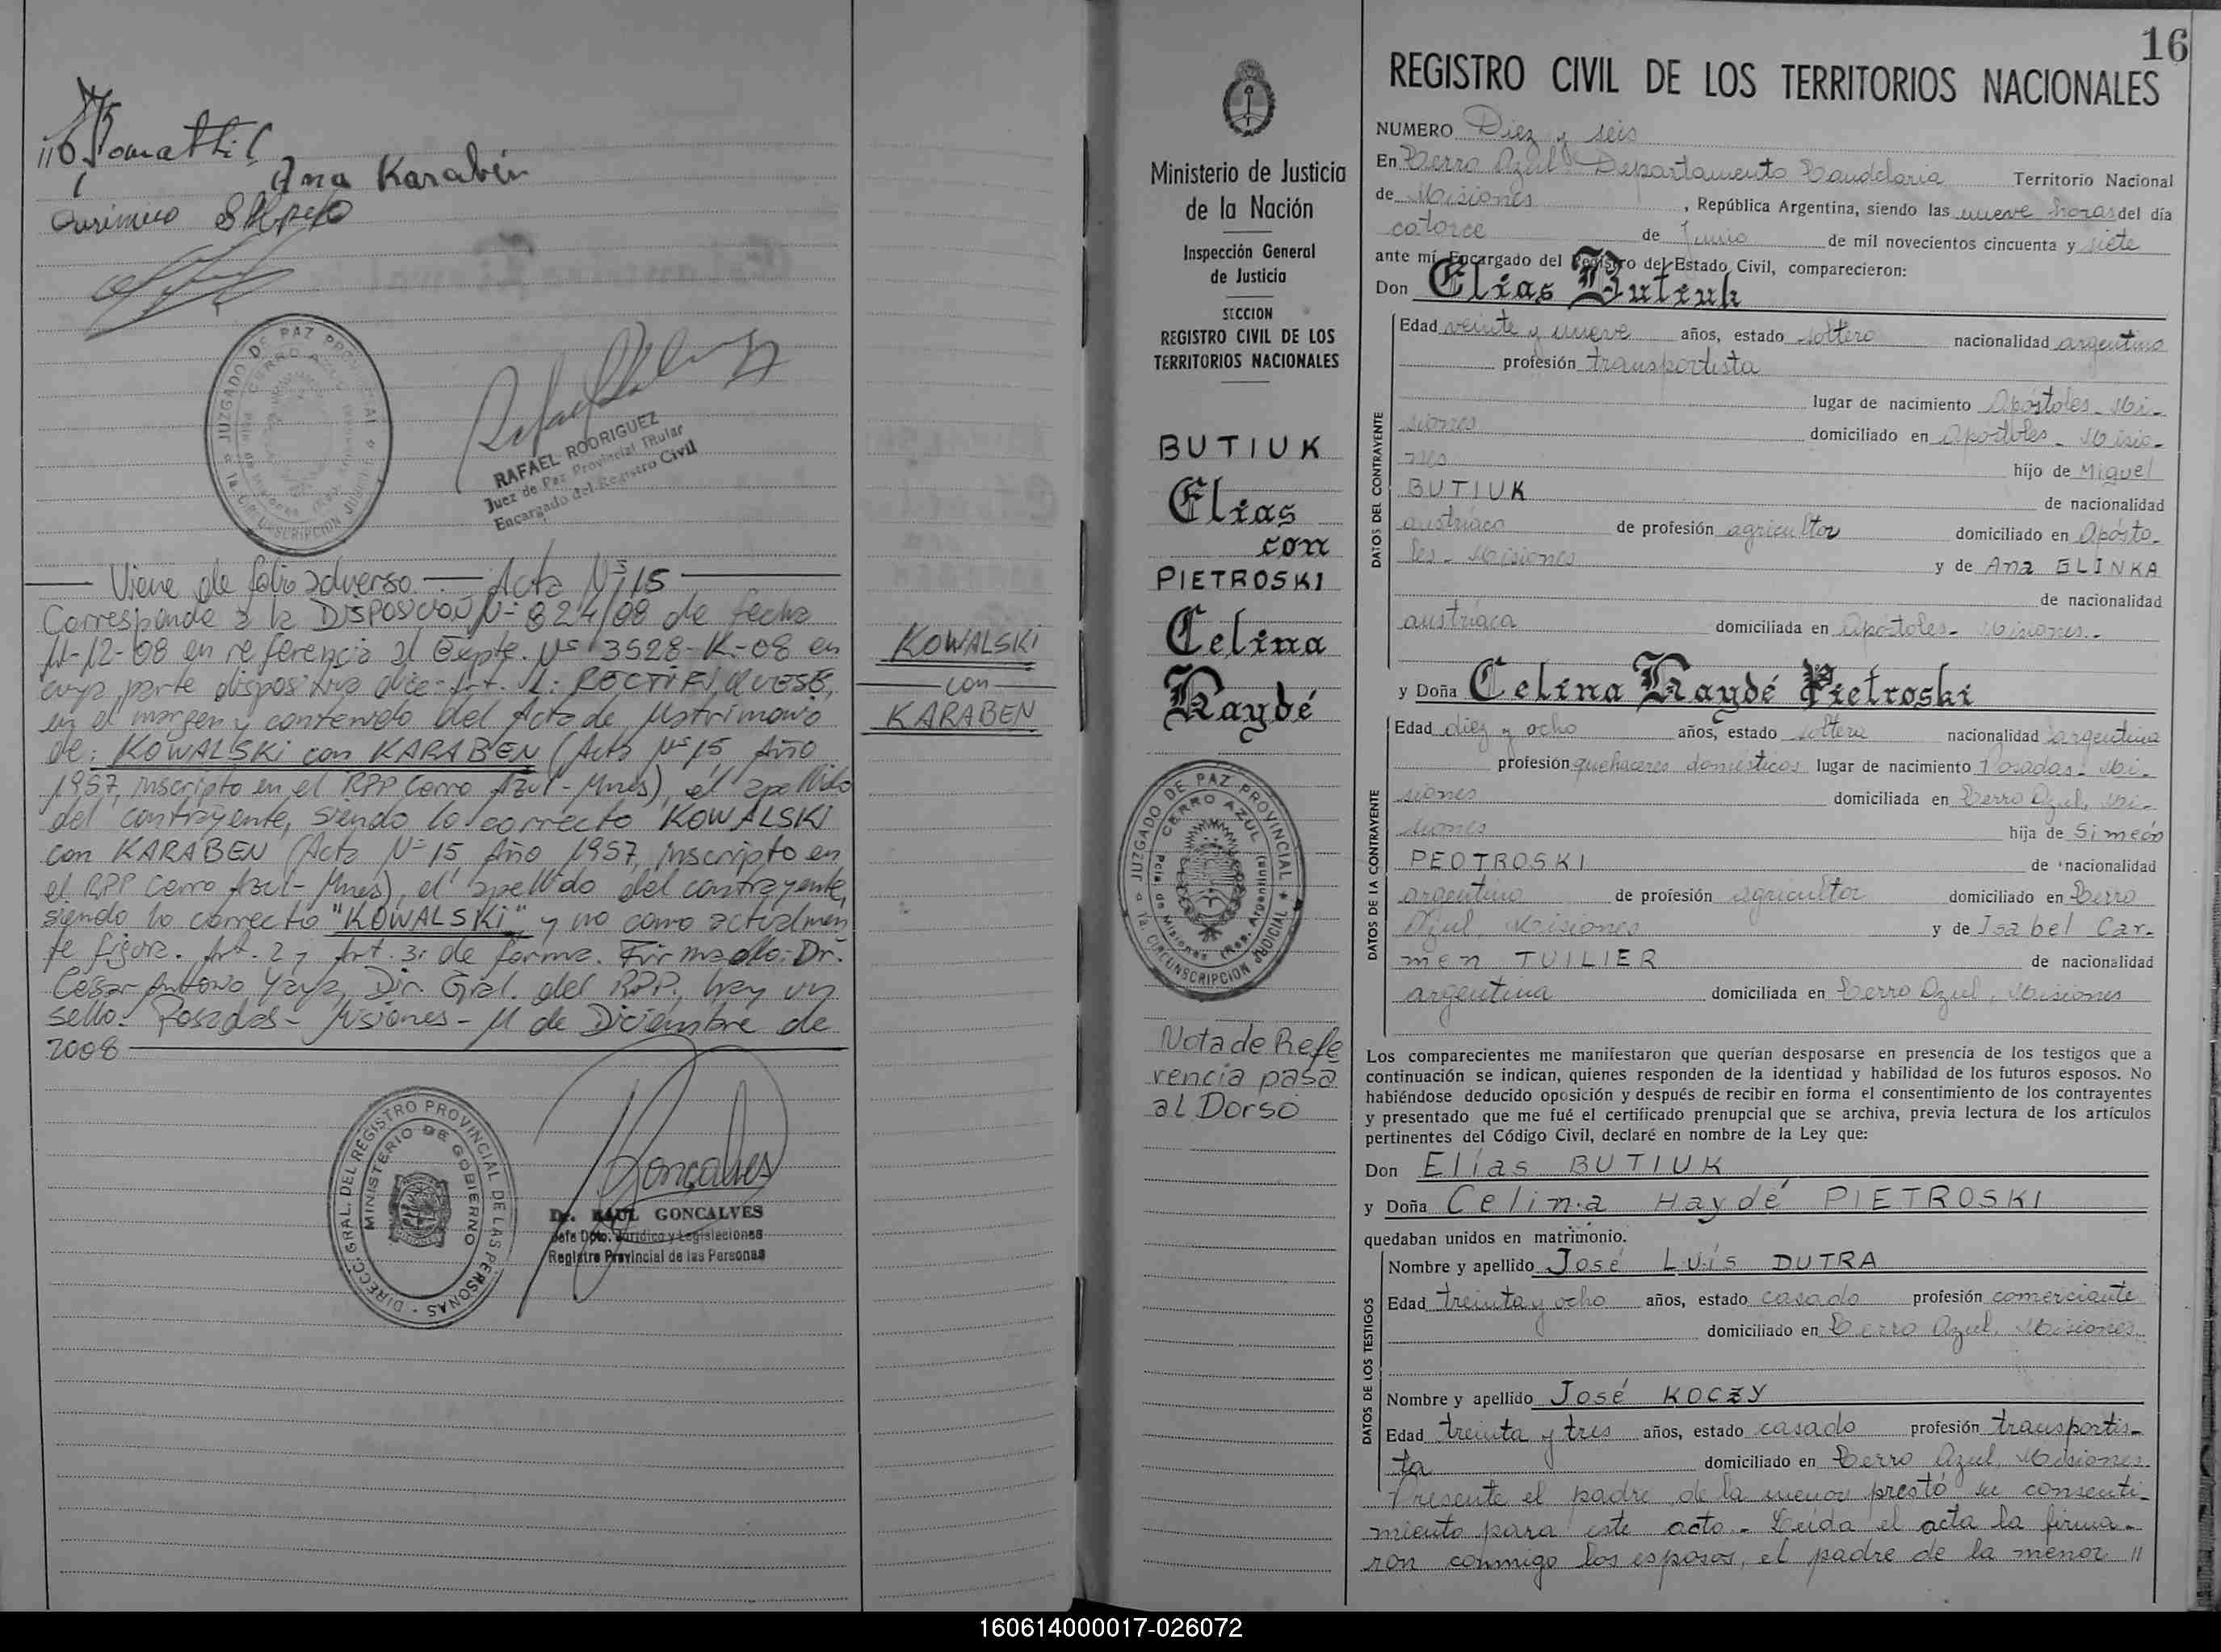 Ana Karabén
JUZGADO DE PAZ PROVINCIAL
CERRO AZUL
RAFAEL RODRIGUEZ
Juez de Paz Provincial Titular
Encargado del Registro Civil
Viene de folio adverso. Acta Nº 15
Corresponde a la DISPOSICION Nº 824/08 de fecha
11-12-08 en referencia al Expte. Nº 3528-K-08 en
cuya parte dispositiva dice: Art. 1: RECTIFIQUESE,
en el margen y contenido del Acta de Matrimonio
de: KOWALSKI con KARABEN (Acta Nº 15, Año
1957, inscripto en el RPP Cerro Azul - Mnes), el apellido
del contrayente, siendo lo correcto KOWALSKI
con KARABEN (Acta Nº 15 Año 1957, inscripto en
el RPP Cerro Azul - Mnes), el apellido del contrayente,
siendo lo correcto "KOWALSKI" y no como actualmen
te figura. Art. 2 y Art. 3: de forma. Firmado: Dr.
Cesar Antonio Yaya, Dir. Gral. del RPP, hay un
sello. Posadas - Misiones - 11 de Diciembre de
2008
KOWALSKI
con
KARABEN
DIRECC. GRAL. DEL REGISTRO PROVINCIAL DE LAS PERSONAS
MINISTERIO DE GOBIERNO
Dr. RAUL GONCALVES
Jefe Dpto. Jurídico y Legislaciones
Registro Provincial de las Personas
16
Ministerio de Justicia
de la Nación
Inspección General
de Justicia
SECCION
REGISTRO CIVIL DE LOS
TERRITORIOS NACIONALES
BUTIUK
Elias
con
PIETROSKI
Celina
Haydé
JUZGADO DE PAZ PROVINCIAL
CERRO AZUL
Pcia. de Misiones (Rep. Argentina)
a 1a. CIRCUNSCRIPCION JUDICIAL
Nota de Refe
rencia pasa
al Dorso
REGISTRO CIVIL DE LOS TERRITORIOS NACIONALES
NUMERO Diez y seis
En Cerro Azul Departamento Candelaria Territorio Nacional
de Misiones, República Argentina, siendo las nueve horas del día
catorce de Junio de mil novecientos cincuenta y siete
ante mí, Encargado del Registro del Estado Civil, comparecieron:
Don Elias Butiuk
DATOS DEL CONTRAYENTE
Edad veinte y nueve años, estado soltero nacionalidad argentino
profesión transportista
lugar de nacimiento Apóstoles - Mi-
siones domiciliado en Apóstoles - Misio-
nes hijo de Miguel
BUTIUK de nacionalidad
austríaco de profesión agricultor domiciliado en Apósto-
les - Misiones y de Ana GLINKA
de nacionalidad
austríaca domiciliada en Apóstoles - Misiones.-
y Doña Celina Haydé Pietroski
DATOS DE LA CONTRAYENTE
Edad diez y ocho años, estado soltera nacionalidad argentina
profesión quehaceres domésticos lugar de nacimiento Posadas - Mi-
siones domiciliada en Cerro Azul, Mi-
siones hija de Simeón
PEOTROSKI de nacionalidad
argentino de profesión agricultor domiciliado en Cerro
Azul, Misiones y de Isabel Car-
men TUILIER de nacionalidad
argentina domiciliada en Cerro Azul, Misiones
Los comparecientes me manifestaron que querían desposarse en presencia de los testigos que a
continuación se indican, quienes responden de la identidad y habilidad de los futuros esposos. No
habiéndose deducido oposición y después de recibir en forma el consentimiento de los contrayentes
y presentado que me fué el certificado prenupcial que se archiva, previa lectura de los artículos
pertinentes del Código Civil, declaré en nombre de la Ley que:
Don Elías BUTIUK
y Doña Celina Haydé PIETROSKI
quedaban unidos en matrimonio.
DATOS DE LOS TESTIGOS
Nombre y apellido José Luis DUTRA
Edad treinta y ocho años, estado casado profesión comerciante
domiciliado en Cerro Azul, Misiones
Nombre y apellido José KOCZY
Edad treinta y tres años, estado casado profesión transportis-
ta domiciliado en Cerro Azul, Misiones.
Presente el padre de la menor prestó su consenti-
miento para este acto.- Leída el acta la firma-
ron conmigo los esposos, el padre de la menor //
160614000017-026072